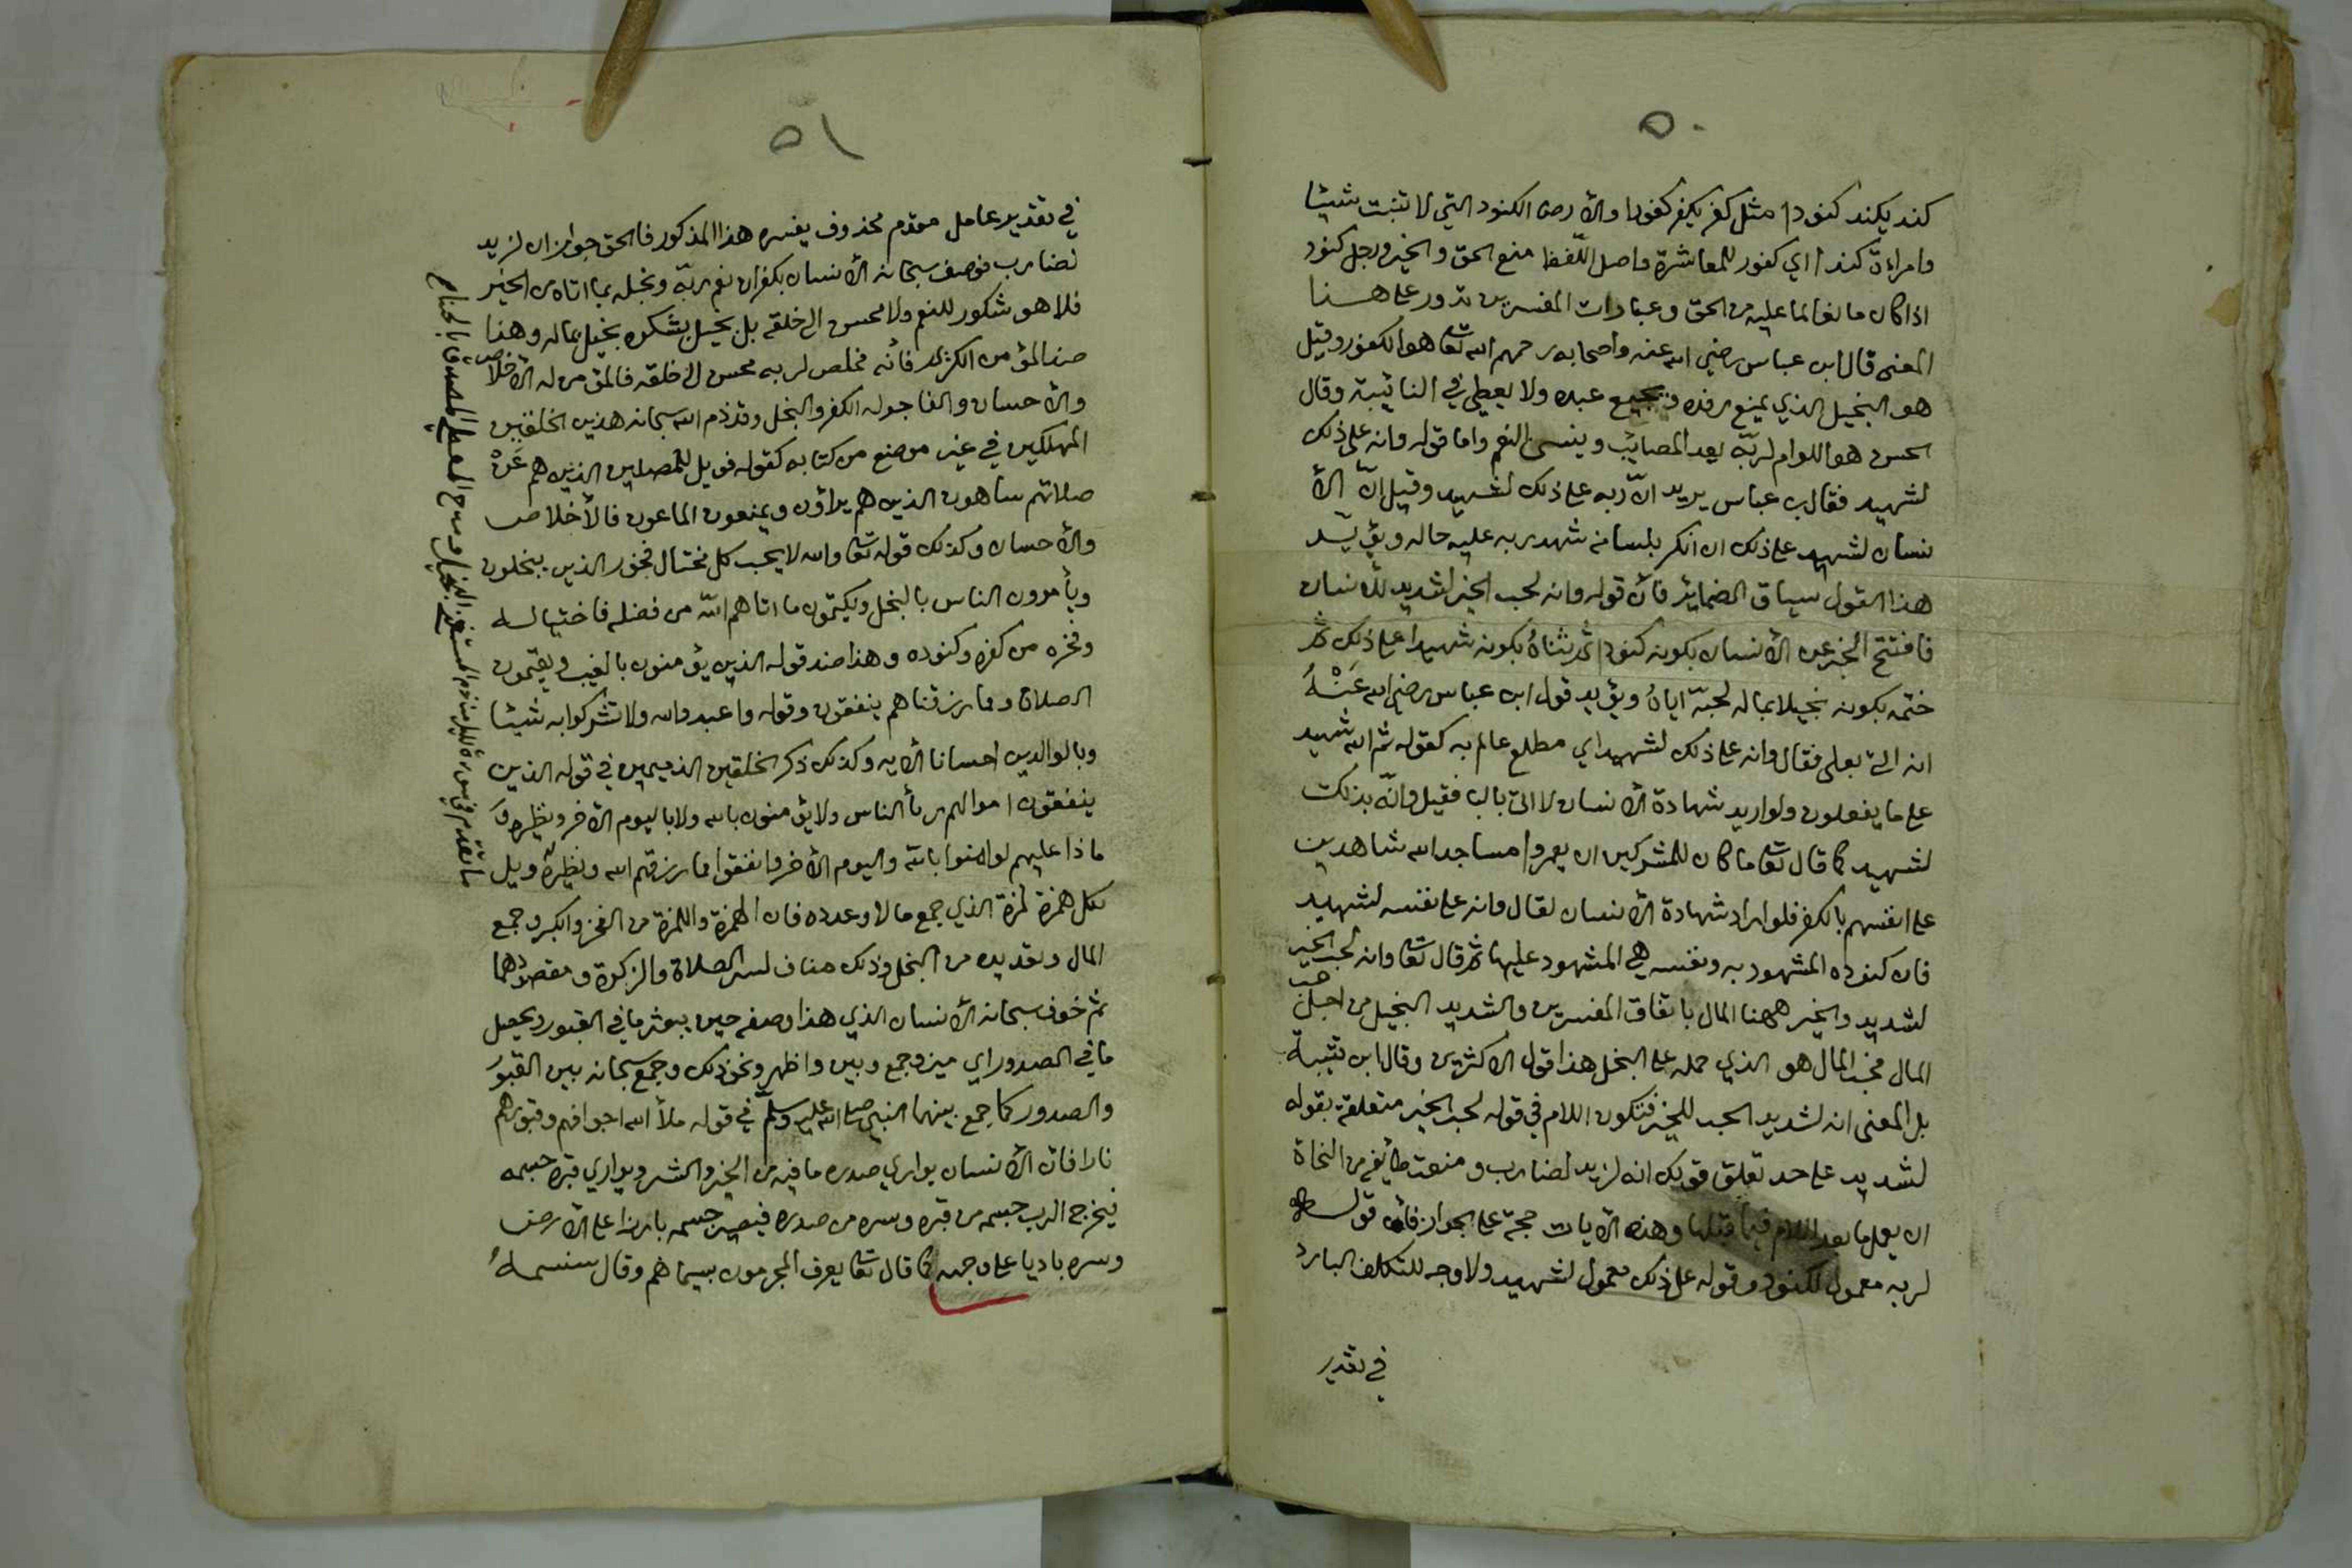 ٥٠
كند يكند كنودا مثل كفر يكفر كفورا والأرض الكنود التي لا تنبت شيئا
وامراءة كندا اي كفور للمعاشرة واصل اللّفظ منع الحق والخير ورجل كنود
اذا كان مانعا لما عليه من الحق وعبارات المفسرين تدور على هذا
المعنى قال ابن عباس رضي الله عنه واصحابه رحمهم الله تعا هو الكفور وقيل
هو البخيل الذي يمنع رفده ويجيع عبده ولا يعطي في النائيبة وقال
الحسن هو اللوام لربّه يعد المصائب وينسى النعم واما قوله وانه على ذلك
لشهيد فقال بن عباس يريد انّ ربه على ذلك لشهيد وقيل انّ الأ
نسان لشهيد على ذلك ان انكر بلسانه شهد ربه عليه حاله ويؤيّد
هذا القول سياق الضمائر فأن قوله وانه لحب الخير لشديد للأنسان
فافتتح الخبر عن الأنسان بكونه كنودا ثم ثناهُ بكونه شهيدا على ذلك ثم
ختمه بكونه بخيلا بماله لحبّه اياهُ ويؤيد قول ابن عباس رضي الله عَنْهُ
انه اتى بعلى فقال وانه على ذلك لشهيد اي مطلع عالم به كقوله ثم الله شهيد
على ما يفعلون ولو اريد شهادة الأنسان لاتى بالبا فقيل وانّه بذلك
لشهيد كما قال تعا ما كان للمشركين ان يعمروا مساجد الله شاهدين
على انفسهم بالكفر فلو اراد شهادة الأنسان لقال وانه على نفسه لشهيد
فان كنوده المشهود به ونفسه هي المشهود عليها ثم قال تعا وانه لحب الخير
لشديد والخير ههنا المال باتفاق المفسرين والشديد البخيل من اجل حب
المال فحب المال هو الذي حمله على البخل هذا قول الاكثرين وقال ابن قتيبة
بل المعنى انه لشديد الحب للخير فتكون اللام في قوله لحب الخير متعلقة بقوله
لشديد على حد تعلق قولك انه لزيد لضارب ومنعت طائفة من النحاة
ان يعمل ما بعد اللام فيما قبلها وهذه الآيات حجة على الجواز فأن قوله
لربه معمول لكنود وقوله على ذلك معمول لشهيد ولا وجه للتكلف البارد
في تقدير
٥١
في تقدير عامل مقدم محذوف يفسره هذا المذكور فالحق جواز ان لزيد
لضارب فوصف سبحانه الأنسان بكفران نعم ربّه وبخله بما اتاه من الخير
فلا هو شكور للنعم ولا محسن الى خلقه بل بخيل بشكره بخيل بماله وهذا
ضد المؤمن الكريم فأنه مخلص لربه محسن الى خلقه فالمؤمن له الأخلاص
والأحسان والفاجر له الكفر والبخل وقد ذم الله سبحانه هذين الخلقين
المهلكين في غير موضع من كتابه كقوله فويل للمصلين الذين هم عَنْ
صلاتهم ساهون الذين هم يراؤن ويمنعون الماعون فالأخلاص
والأحسان وكذلك قوله تعا والله لا يحب كل مختال فخور الذين يبخلون
ويأمرون الناس بالبخل ويكتمون ما اتاهم اللّه من فضله فاختياله
وفخره من كفره وكنوده وهذا ضد قوله الذين يؤمنون بالغيب ويقيمون
الصلاة ومما رزقناهم ينفقون وقوله واعبدوا الله ولا تشركوا به شيئا
وبالوالدين احسانا الأيه وكذلك ذكر الخلقين الذميمين في قوله الذين
ينفقون اموالهم رئا الناس ولا يؤمنون بالله ولا باليوم الأخر ونظيره وَ
ماذا عليهم لو امنوا بالله واليوم الأخر وانفقوا مما رزقهم الله ونظيرهُ ويل
لكل همزة لمزة الذي جمع مالا وعدده فان الهمزة واللمزة من الفخر والكبر وجمع
المال وتعديده من البخل وذلك مناف لسر الصلاة والزكوة ومقصودهما
ثم خوف سبحانه الأنسان الذي هذا وصفه حين يبعثر ما في القبور ويحصل
ما في الصدور اي ميز وجمع وبين واظهر ونحو ذلك وجمع سبحانه بين القبورُ
والصدور كما جمع بينهما النبي صلى الله عليه وسلّم في قوله ملأ الله اجوافهم وقبورهم
نارا فان الأنسان يواري صدره ما فيه من الخير والشر ويواري قبره جسمه
فيخرج الرب جسمه من قبره وسره من صدره فيصير جسمه بارزا على الأرض
وسره باديا على وجهه كما قال تعا يعرف المجرمون بسيماهم وقال سنسمهُ